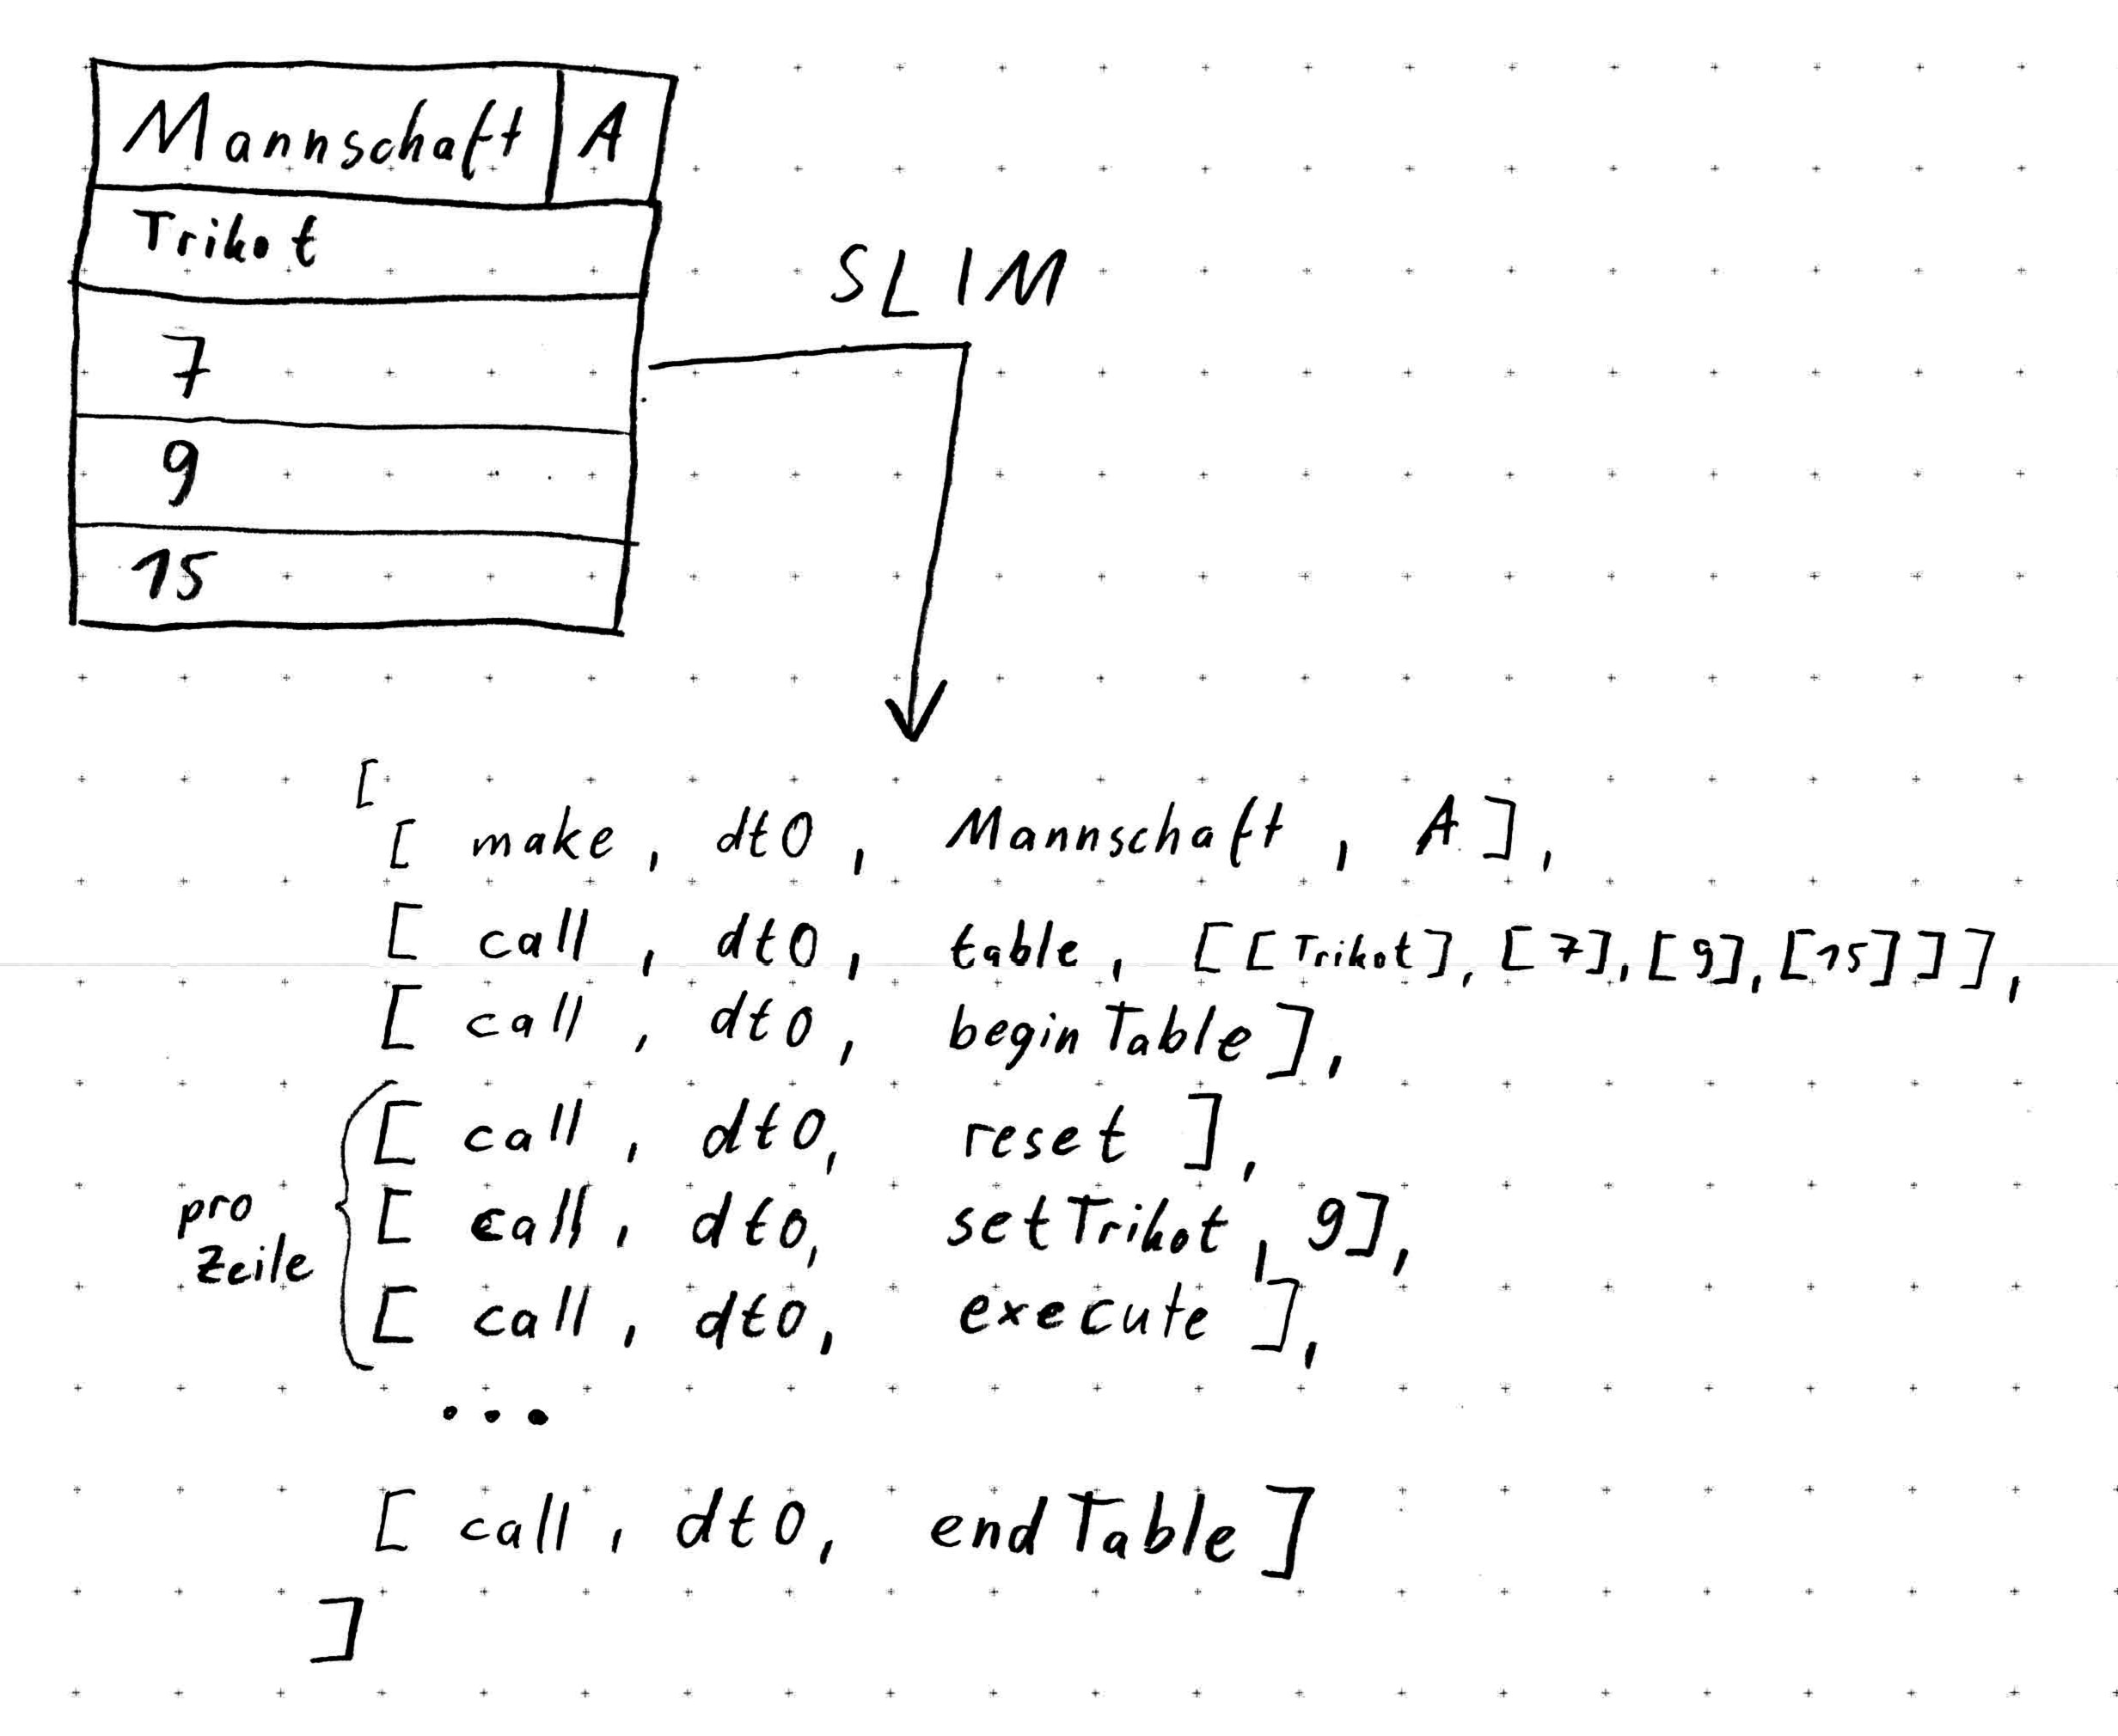 Mannschaft A
Trikot
7
9
15
SLIM
[
[ make, dt0, Mannschaft, A],
[ call, dt0, table, [[Trikot], [7], [9], [15]]],
[ call, dt0, beginTable],
[ call, dt0, reset ],
pro Zeile
[ call, dt0, setTrikot, 9],
[ call, dt0, execute ],
...
[ call, dt0, endTable]
]